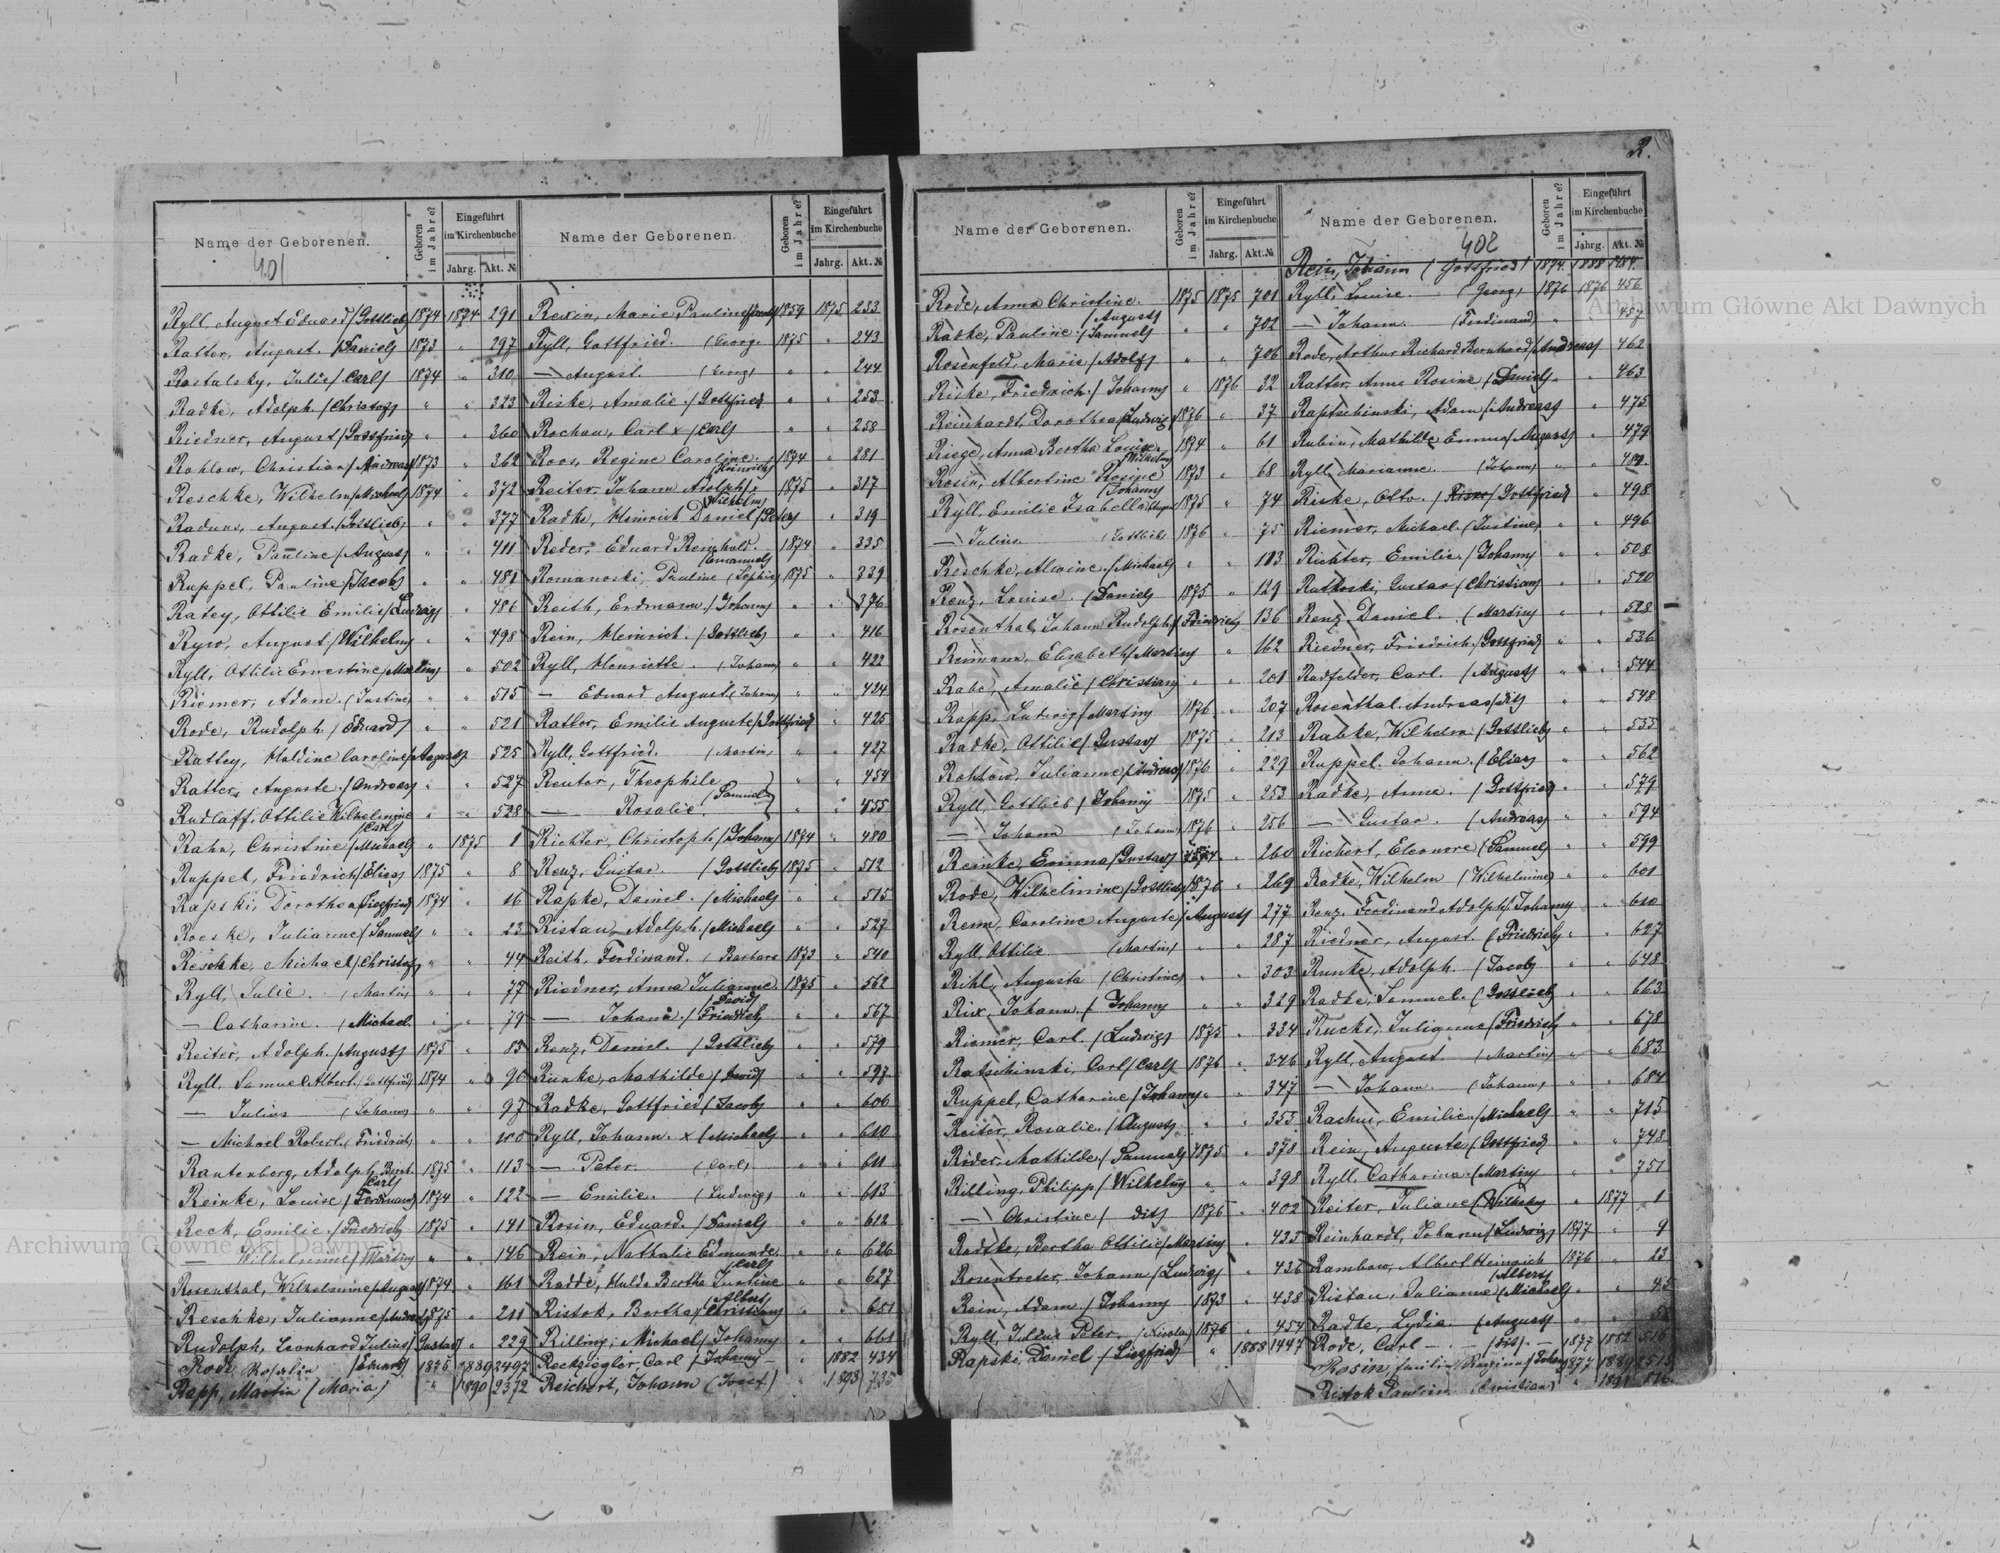 2.
Name der Geborenen.
401
Geboren im Jahre?
Eingeführt im Kirchenbuche
Jahrg. Akt. №
Ryll, August Eduard (Gottlieb) 1874 1874 291
Ratter, August. (Daniel) 1873 " 297
Rostalsky, Julie (Carl) 1874 " 310
Radke, Adolph (Christof) " " 323
Riedner, August (Gottfried) " " 360
Rohlow, Christian (Andreas) 1873 " 362
Reschke, Wilhelm (Michael) 1874 " 372
Raduns, August (Gottlieb) " " 377
Radke, Pauline (August) " " 411
Ruppel, Pauline (Jacob) " " 481
Ratey, Ottilie Emilie (Ludwig) " 486
August (Wilhelm) " " 498
Ryll, Ottilie Ernestine (Martin) " 502
Riemer, Adam. (Justine) " " 515
Rode, Rudolph (Eduard) " " 521
Rattey, Caroline (August) 525
Ratter, Auguste (Andreas) " " 527
Rudlaff, Ottilie Wilhelmine " " 528
(Carl)
Rahn, Christine (Michael) " 1875 1
Ruppel, Friedrich (Elias) 1875 " 8
Rapski, Dorothea (Siegfried) 1874 " 16
Roeske, Julianne (Samuel) " " 22
Reschke, Michael (Christof) " " 44
Ryll, Julie. (Martin) " " 77
— Catharine. (Michael. " " 79
Reiter, Adolph. (August) 1875 " 83
Ryll, Samuel Albert. (Gottfried) 1874 " 90
— Julius (Johann) " " 97
— Michael Robert. (Friedrich) " "
Rautenberg, Adolph 1875 " 113
(Carl)
Reinke, Louise (Ferdinand) 1874 " 122
Reck, Emilie (Friedrich) 1875 " 141
— Wilhelmine (Martin) " " 146
Rosenthal, Wilhelmine (August) 1874 " 161
Reschke, Julianne (Andreas) 1875 " 211
Rudolph, Leonhard Julius (Gustav) " 229
Rode Rosalie (Eduard) 1875 1889 2497
Rapp, Martin (Maria) " 1890 2372
Name der Geborenen.
Geboren im Jahre?
Eingeführt im Kirchenbuche
Jahrg. Akt. №
Rewin, Marie Pauline 1859 1875 233
Ryll, Gottfried. (Georg. 1875 " 243
— August. (Georg) " " 244
Riske, Amalie. (Gottfried " " 253
Rochau, Carl x (Carl) " " 258
Roos, Regine Caroline. 1874 " 281
(Heinrich)
Reiter, Johann Adolph 1875 " 317
(Wilhelm)
Radke, Heinrich Daniel (Peter) " 319
Reder, Eduard Reinhold. 1874 " 335
(Emanuel)
Romanoski, Pauline (Sophie) 1875 " 339
Reith, Erdmann (Johann) " " 376
Rein, Heinrich. (Gottlieb) " " 416
Ryll, Henriette. (Johann) " " 422
— Eduard August (Johann) " " 424
Ratter, Emilie Auguste (Gottfried) " 425
Ryll, Gottfried. (Martin) " " 427
Reuter, Theophile " " 454
— Rosalie. (Samuel) " " 455
Richter, Christoph (Johann) 1874 " 480
Renz, Gustav. (Gottlieb) 1875 " 512
Rapke, Daniel. (Michael) " " 515
Ristau, Adolph (Michael) " " 527
Reith, Ferdinand. (Barbara 1873 " 540
Riedner, Anna Julianne 1875 " 562
(David)
— Johann. (Friedrich) " " 567
Renz, Daniel. (Gottlieb) " " 579
Runke, Mathilde (David) " " 597
Radke, Gottfried (Jacob) " " 606
Ryll, Johann. x (Michael) " " 610
— Peter. (Carl) " " 611
— Emilie. (Ludwig) " " 613
Rosin, Eduard. (Daniel) " " 612
Rein, Nathalie Edmunde. " " 626
(Carl)
Radde, Hulda Bertha Justine " " 627
(Albert)
Ristok, Bertha (Christian) " " 651
Rilling, Michael (Johann) " " 661
Reckziegler, Carl (Johann) " 1882 434
Reichert, Johann (Josef) " 1893 735
Name der Geborenen.
Geboren im Jahre?
Eingeführt im Kirchenbuche
Jahrg. Akt. №
Rode, Anna Christine. 1875 1875 701
(August)
Radke, Pauline (Samuel) " " 702
Rosenfeld, Marie (Adolf) " " 706
Riske, Friedrich (Johann) " 1876 32
Reinhardt, Dorothea (Ludwig) 1876 " 37
Riege, Anna Bertha Louise. 1874 " 61
(Wilhelm)
Rosin, Albertine Rosine 1873 " 68
(Johann)
Ryll, Emilie Isabella 1875 " 74
— Julius (Gottlieb) 1876 " 75
Reschke, Alwine (Michael) " " 103
Renz, Louise. (Daniel) 1875 " 129
Rosenthal, Johann Rudolph (Friedrich) 136
Reimann, Elisabeth (Martin) " 162
Rabe, Amalie (Christian) " " 201
Rapp, Ludwig (Martin) 1876 " 207
Radke, Ottilie (Gustav) 1875 " 213
Rohlow, Julianne (Andreas) 1876 " 229
Ryll, Gottlieb (Johann) 1875 " 253
— Johann (Johann) 1876 " 256
Reinke, Emma (Gustav) 1874 " 260
Rode, Wilhelmine (Gottlieb) 1876 " 269
Caroline Auguste (August) 277
Ryll, Ottilie (Martin) " " 287
Rihl, Augusta (Christine) " " 303
Rix, Johann. (Johann) " " 329
Riemer, Carl. (Ludwig) 1875 " 334
Ratschinski, Carl (Carl) 1876 " 346
Ruppel, Catharine (Johann) " " 347
Reiter, Rosalie. (August) " " 355
Röder, Mathilde (Samuel) 1875 " 378
Rilling, Philipp (Wilhelm) " " 398
— Christine ( dito) 1876 " 402
Radtke, Bertha Ottilie (Martin) " 433
Rosentreter, Johann (Ludwig) " 436
Rein, Adam (Johann) 1873 " 438
Ryll, Julius Peter. (Nicolai) 1876 " 454
Rapski, Daniel (Siegfried) " 1888 1447
Name der Geborenen.
402
Geboren im Jahre?
Eingeführt im Kirchenbuche
Jahrg. Akt. №
Rein, Johann (Gottfried) 1874. 1888
Ryll, Louise. (Georg) 1876 1876 456
— Johann. (Ferdinand) " " 457
Rode, Arthur Richard Bernhard (Andreas) 462
Ratter, Anna Rosine (Daniel) " " 463
Raptschinski, Adam (Andreas) " 475
Rubin, Mathilde Emma (August) " 479
Ryll, Marianne. (Johann) " "
Riske, Otto. (Gottfried " 498
Riemer, Michael. (Justine) " " 496
Richter, Emilie. (Johann) " " 508
Rutkoski, Gustav (Christian) " " 520
Renz, Daniel. (Martin) " " 528
Riedner, Friedrich (Gottfried) " " 536
Radfelder, Carl. (August) " " 544
Rosenthal, Andreas (dito) " " 548
Radke, Wilhelm (Gottlieb) " " 555
Ruppel, Johann. (Elias) " " 562
Radke, Anna. (Gottfried) " " 579
— Gustav. (Andreas) " " 594
Richert, Eleonore (Samuel) " " 599
Radke, Wilhelm (Wilhelmine) " " 601
Renz, Ferdinand Adolph (Johann) " 610
Riedner, August. (Friedrich) " " 627
Runke, Adolph. (Jacob) " " 648
Radke, Samuel. (Gottlieb) " " 663
Rucks, Julianne (Friedrich) " " 678
Ryll, August (Martin) " " 683
— Johann. (Johann) " " 684
Rachui, Emilie (Michael) " " 715
Rein, Auguste (Gottfried) " " 748
Ryll, Catharina (Martin) " " 751
Reiter, Juliane (Wilhelm) " 1877 1
Reinhardt, Johann (Ludwig) 1877 " 9
Rambow, Albert Heinrich 1876 " 23
(Albert)
Ristau, Julianne (Michael) " " 45
Radke, Lydia. (August) " "
Rode, Carl — . — (dito) . — 1877 1882 516
Rosin, Emilie Rosina (Johann) 1877 1889 2515
Ristok Paulin. (Christian) " 1891
Archiwum Główne Akt Dawnych
Archiwum Główne Akt Dawnych